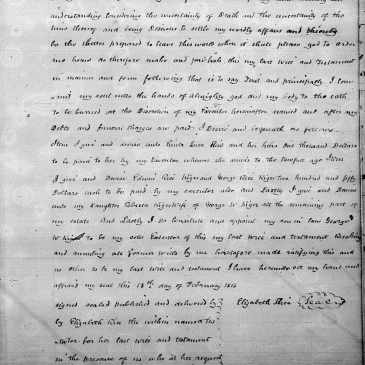 understanding Considering the uncertainty of Death and the uncertainty of this
time theory and being Desirous to settle my worldly affairs and thereby
be the better prepared to leave this world when it shall please god to order
me hence do therefore make and publish this my last will and Testament
in manner and form following that is to say first and principally I com-
-mit my soul into the hands of Almighty god and my body to the earth
to be buried at the Discretion of my Executor hereinafter named and after my
Debts and funeral charges are paid I Devise and bequeath as follows
Item I give and devise unto Rice and her heirs one thousand Dollars
to be paid to her by my Executor when she arives to the lawful age Item
I give and Devise Edwin Rice and George Rice two hundred and fifty
Dollars each to be paid by my executor also and Lastly I give and Devise
unto my daughter Rebecca wife of George W all the remaining part of
my estate And Lastly I do constitute and appoint my son in law George
W to be my sole Executor of this my last will and testament Revoking
and annulling all former wills by me heretofore made ratifying this and
no other to be my last will and testament I have hereunto set my hand and
affixed my seal this 18th day of February
signed sealed published and delivered by
by Elizabeth Rice the within named tes
-tator for her last will and testament
in the presence of us who at her request
Elizabeth Rice Seal